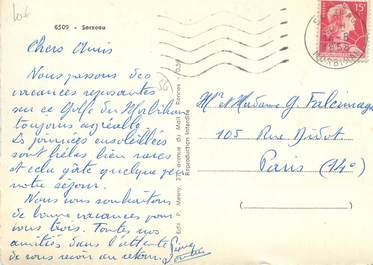 6509 - Sarzeau
Chers Amis
Nous passons des
vacances reposantes
sur ce Golfe du Morbihan
toujours agréable.
Les journées ensoleillées
sont hélas bien rares
et cela gâte quelque peu
notre séjour.
Nous vous souhaitons
de bonnes vacances pour
vous trois. Toutes nos
amitiés dans l'attente
de vous revoir au retour.
Edit. P. Marny, 27, avenue du Mail - Rennes
Reproduction interdite
15F
MORBIHAN
Mr et Madame G. Falcimagne
105 Rue Didot.
Paris (14e)